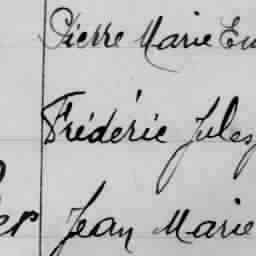 Pierre Marie
Frédéric Jules
Jean Marie